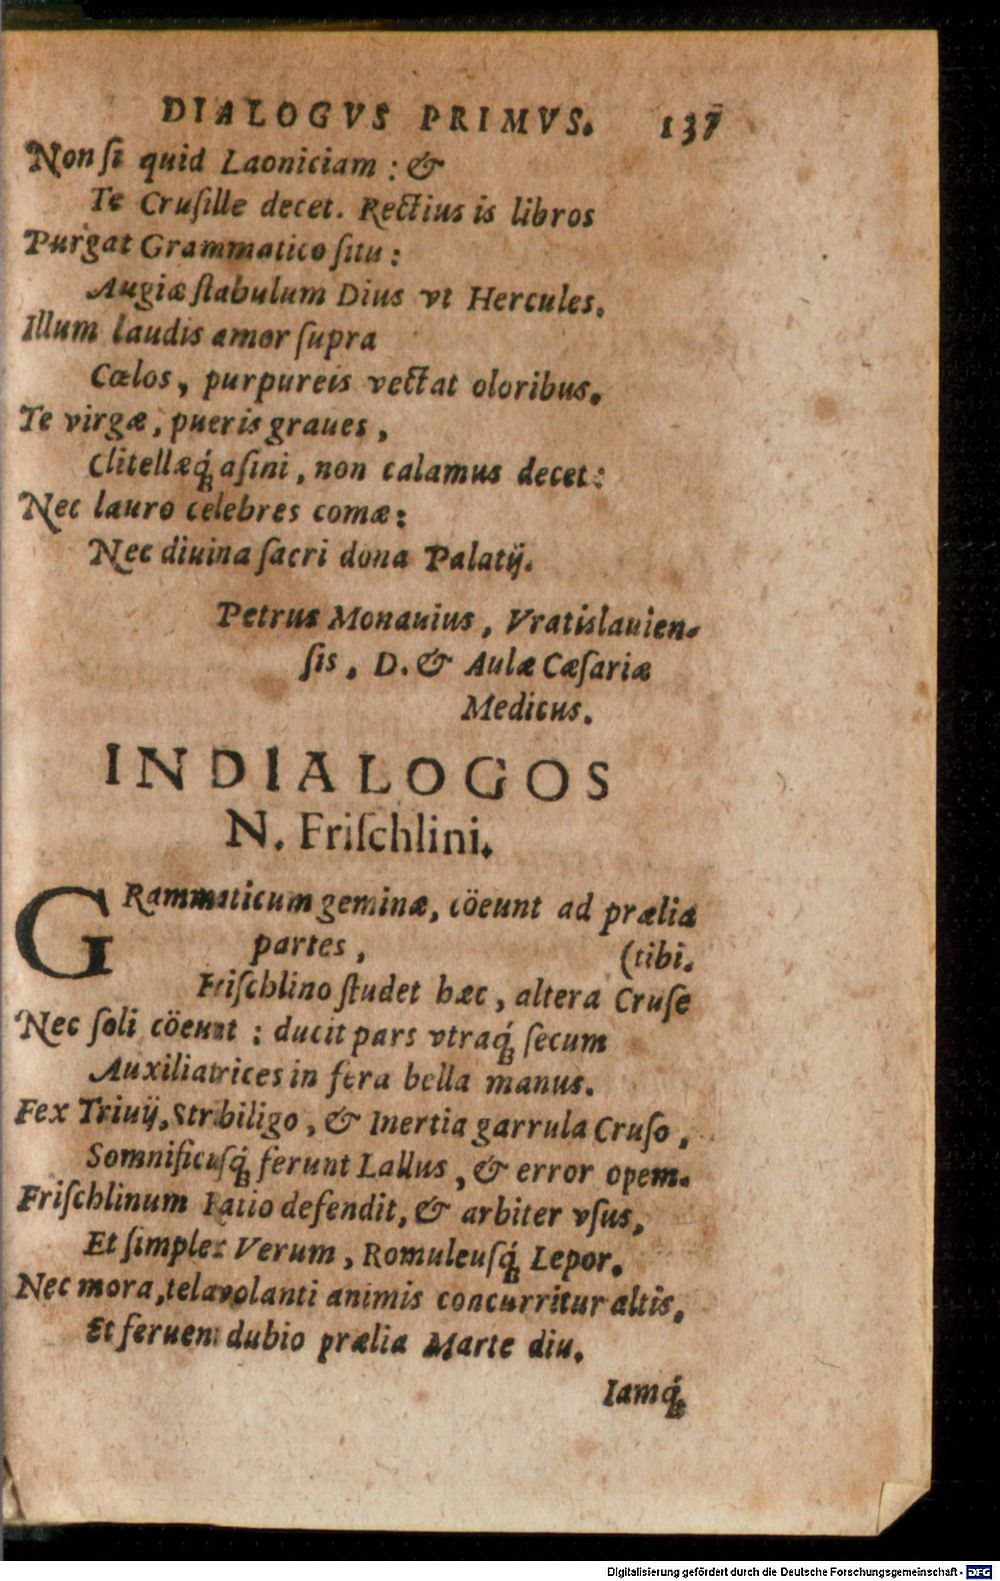 DIALOGVS PRIMVS. 137
Non ſi quid Laoniciam : &
Te Cruſille decet. Rectius is libros
Purgat Grammatico ſitu :
Augiæ ſtabulum Dius vt Hercules.
Illum laudis amor ſupra
Cœlos, purpureis vectat oloribus.
Te virgæ, pueris graues,
Clitellæq́ꝫ aſini, non calamus decet:
Nec lauro celebres comæ:
Nec diuina ſacri dona Palatĳ.
Petrus Monauius, Vratislauien-
ſis, D. & Aulæ Cæſariæ
Medicus.
IN DIALOGOS
N. Friſchlini.
GRammaticum geminæ, cöeunt ad prælia
partes, (tibi.
Friſchlino ſtudet hæc, altera Cruſe
Nec ſoli cöeunt : ducit pars vtraq́ꝫ ſecum
Auxiliatrices in fera bella manus.
Fex Triuĳ, Stribiligo, & Inertia garrula Cruſo,
Somnificuſq́ꝫ ferunt Lallus, & error opem.
Friſchlinum Ratio defendit, & arbiter vſus,
Et ſimplex Verum, Romuleuſq́ꝫ Lepor.
Nec mora, tela volanti animis concurritur altis,
Et feruent dubio prælia Marte diu.
Iamq́ꝫ
Digitalisierung gefördert durch die Deutsche Forschungsgemeinschaft - DFG